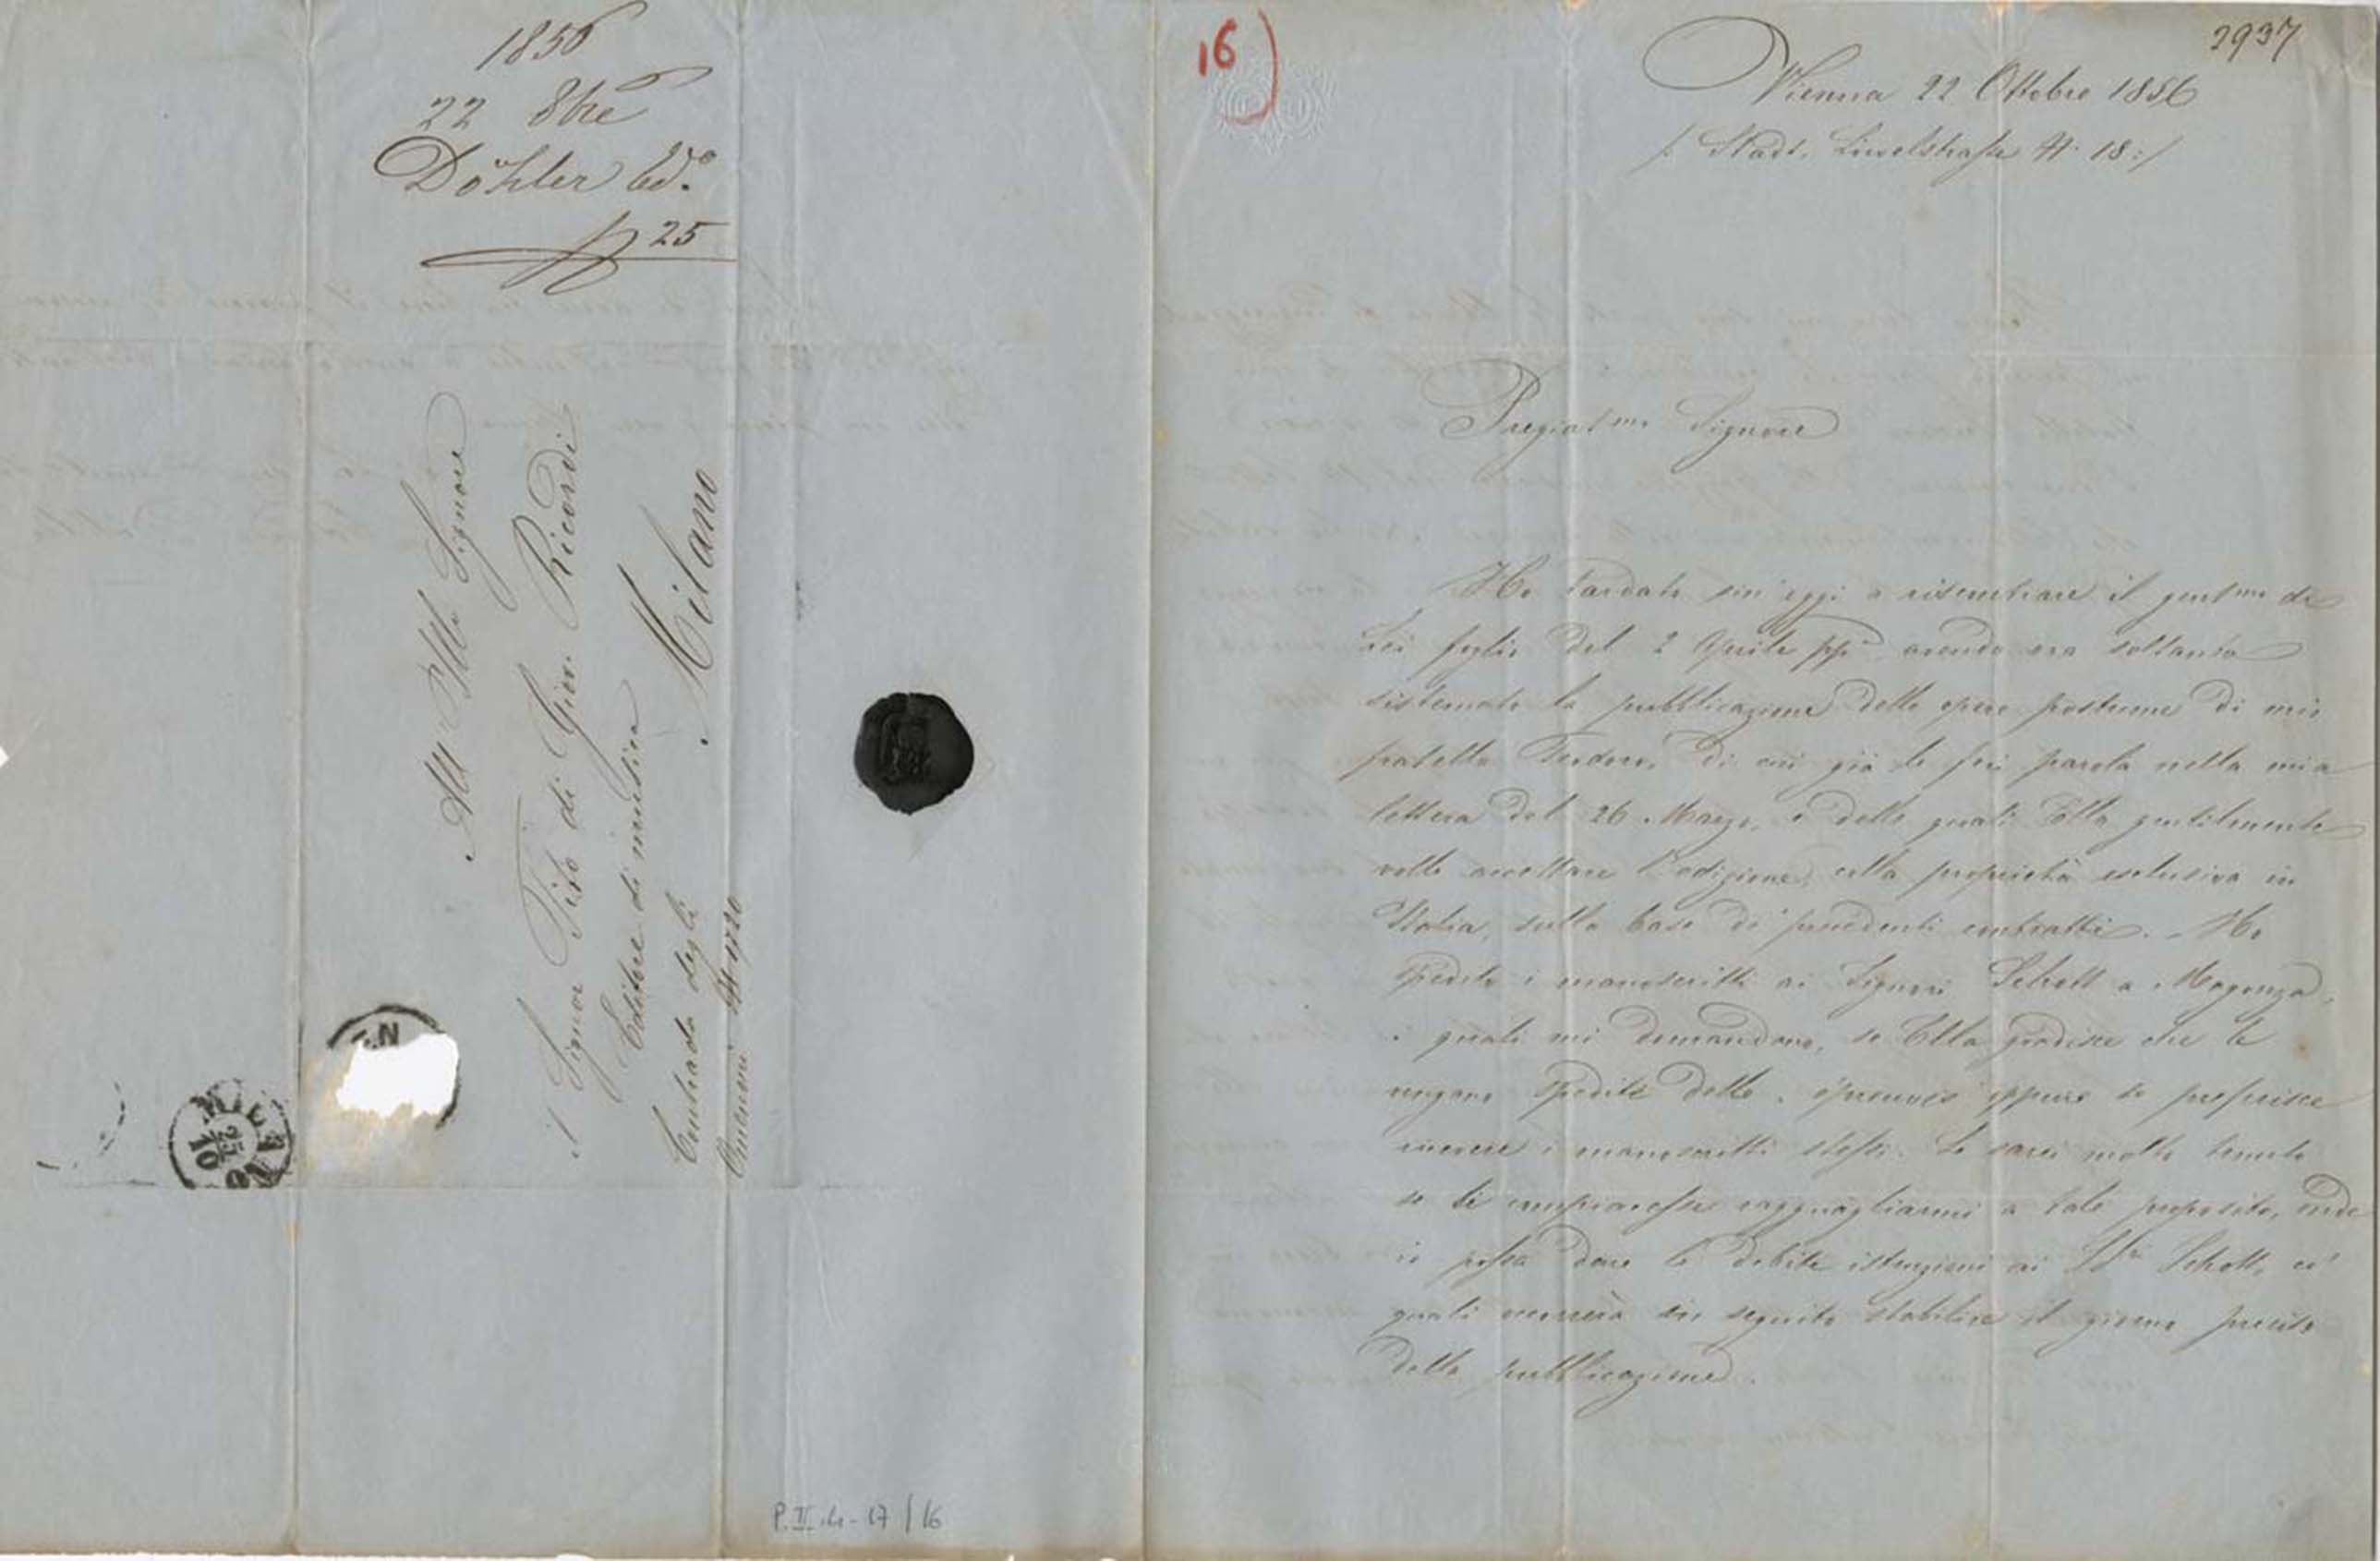 1856
22 8bre
Döhler Ed.o
25
All' Ill.o Signore
il Signor Tito di Giov. Ricordi
Editore di musica
Contrada degli
Omenoni N 1720
Milano
MILANO
25
10
EN
P. II. 4. - 17 / 16
16)
2937
Vienna 22 Ottobre 1856
/: Stadt, N. 18 :/
Pregiat.mo Signore
Ho tardato sin'oggi a riscontrare il gent.mo di
Lei foglio del 2 Aprile pp. avendo ora soltanto
sistemato la pubblicazione delle opere postume di mio
fratello Teodoro, di cui già le feci parola nella mia
lettera del 26 Marzo, e delle quali Ella gentilmente
volle accettare l'edizione, colla proprietà esclusiva in
Italia, sulla base di precedenti contratti. - Ho
spedito i manoscritti ai Signori Schott a Magonza,
i quali mi domandano, se Ella gradisce che le
vengano spedite delle épreuves oppure se preferisce
ricevere i manoscritti stessi. Le sarei molto tenuto
se si compiacesse ragguagliarmi a tale proposito, onde
io possa dare le debite istruzioni ai SS.ri Schott, co'
quali verrà in seguito stabilire il giorno preciso
della pubblicazione.